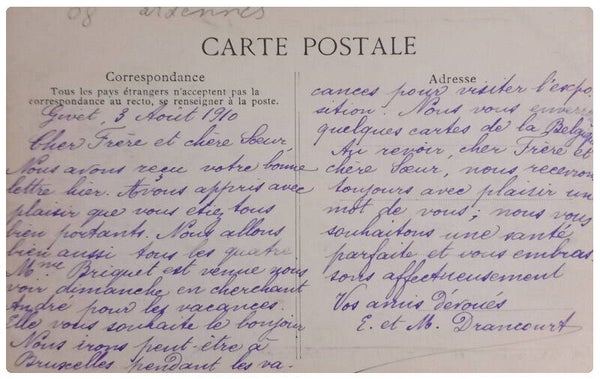 08 ardennes
CARTE POSTALE
Correspondance
Tous les pays étrangers n'acceptent pas la
correspondance au recto, se renseigner à la poste.
Givet, 3 Août 1910
Cher Frère et chère Sœur,
Nous avons reçu votre bonne
lettre hier. Avons appris avec
plaisir que vous etiez tous
bien portants. Nous allons
bien aussi tous les quatre
Mme Briquet est venue nous
voir dimanche, en cherchant
André pour les vacances.
Elle vous souhaite le bonjour
Nous irons peut-être à
Bruxelles pendant les va-
Adresse
cances pour visiter l'expo-
sition. Nous vous enverrons
quelques cartes de la Belgique
Au revoir, cher Frère et
chère Sœur, nous recevrons
toujours avec plaisir un
mot de vous; nous vous
souhaitons une santé
parfaite et vous embras
sons affectueusement
Vos amis dévoués
E. et M. Drancourt